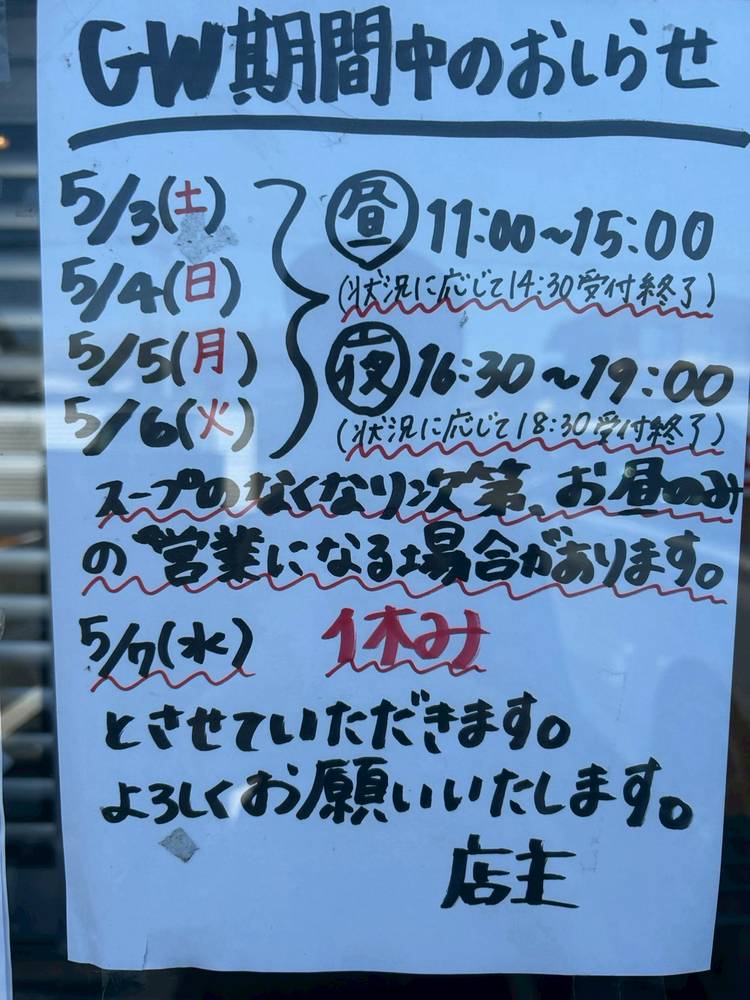 GW期間中のおしらせ
5/3(土)
5/4(日)
5/5(月)
5/6(火)
昼 11:00~15:00
(状況に応じて14:30受付終了)
夜 16:30~19:00
(状況に応じて18:30受付終了)
スープのなくなり次第、お昼のみ
の営業になる場合があります。
5/7(水) 休み
とさせていただきます。
よろしくお願いいたします。
店主